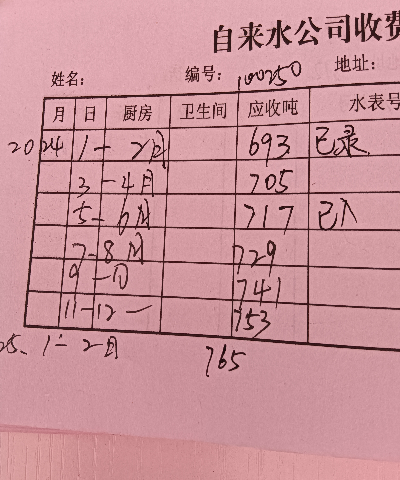 自来水公司收费
姓名: 编号: 100250 地址:
月 日 厨房 卫生间 应收吨 水表号
2024 1-2月 693 已录
3-4月 705
5-6月 717 已入
7-8月 729
9- 741
11-12- 753
25、1-2月 765